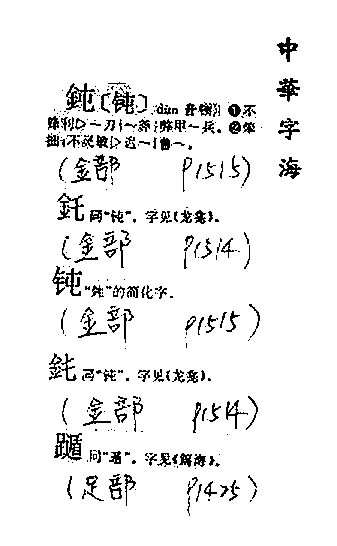 中華字海
鈍〔钝〕dùn 音顿 ❶不
锋利▷～刀|～器|弊甲～兵。❷笨
拙;不灵敏▷迟～|鲁～。
(金部 P1515)
同"钝"。字见《龙龛》。
(金部 P1514)
钝 "鈍"的简化字。
(金部 P1515)
同"钝"。字见《龙龛》。
(金部 P1514)
同"遁"。字见《篇海》。
(足部 P1425)